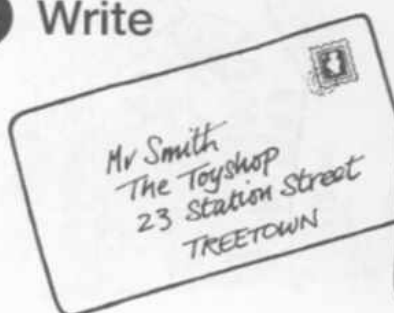 Write
Mr Smith
The Toyshop
23 Station Street
TREETOWN